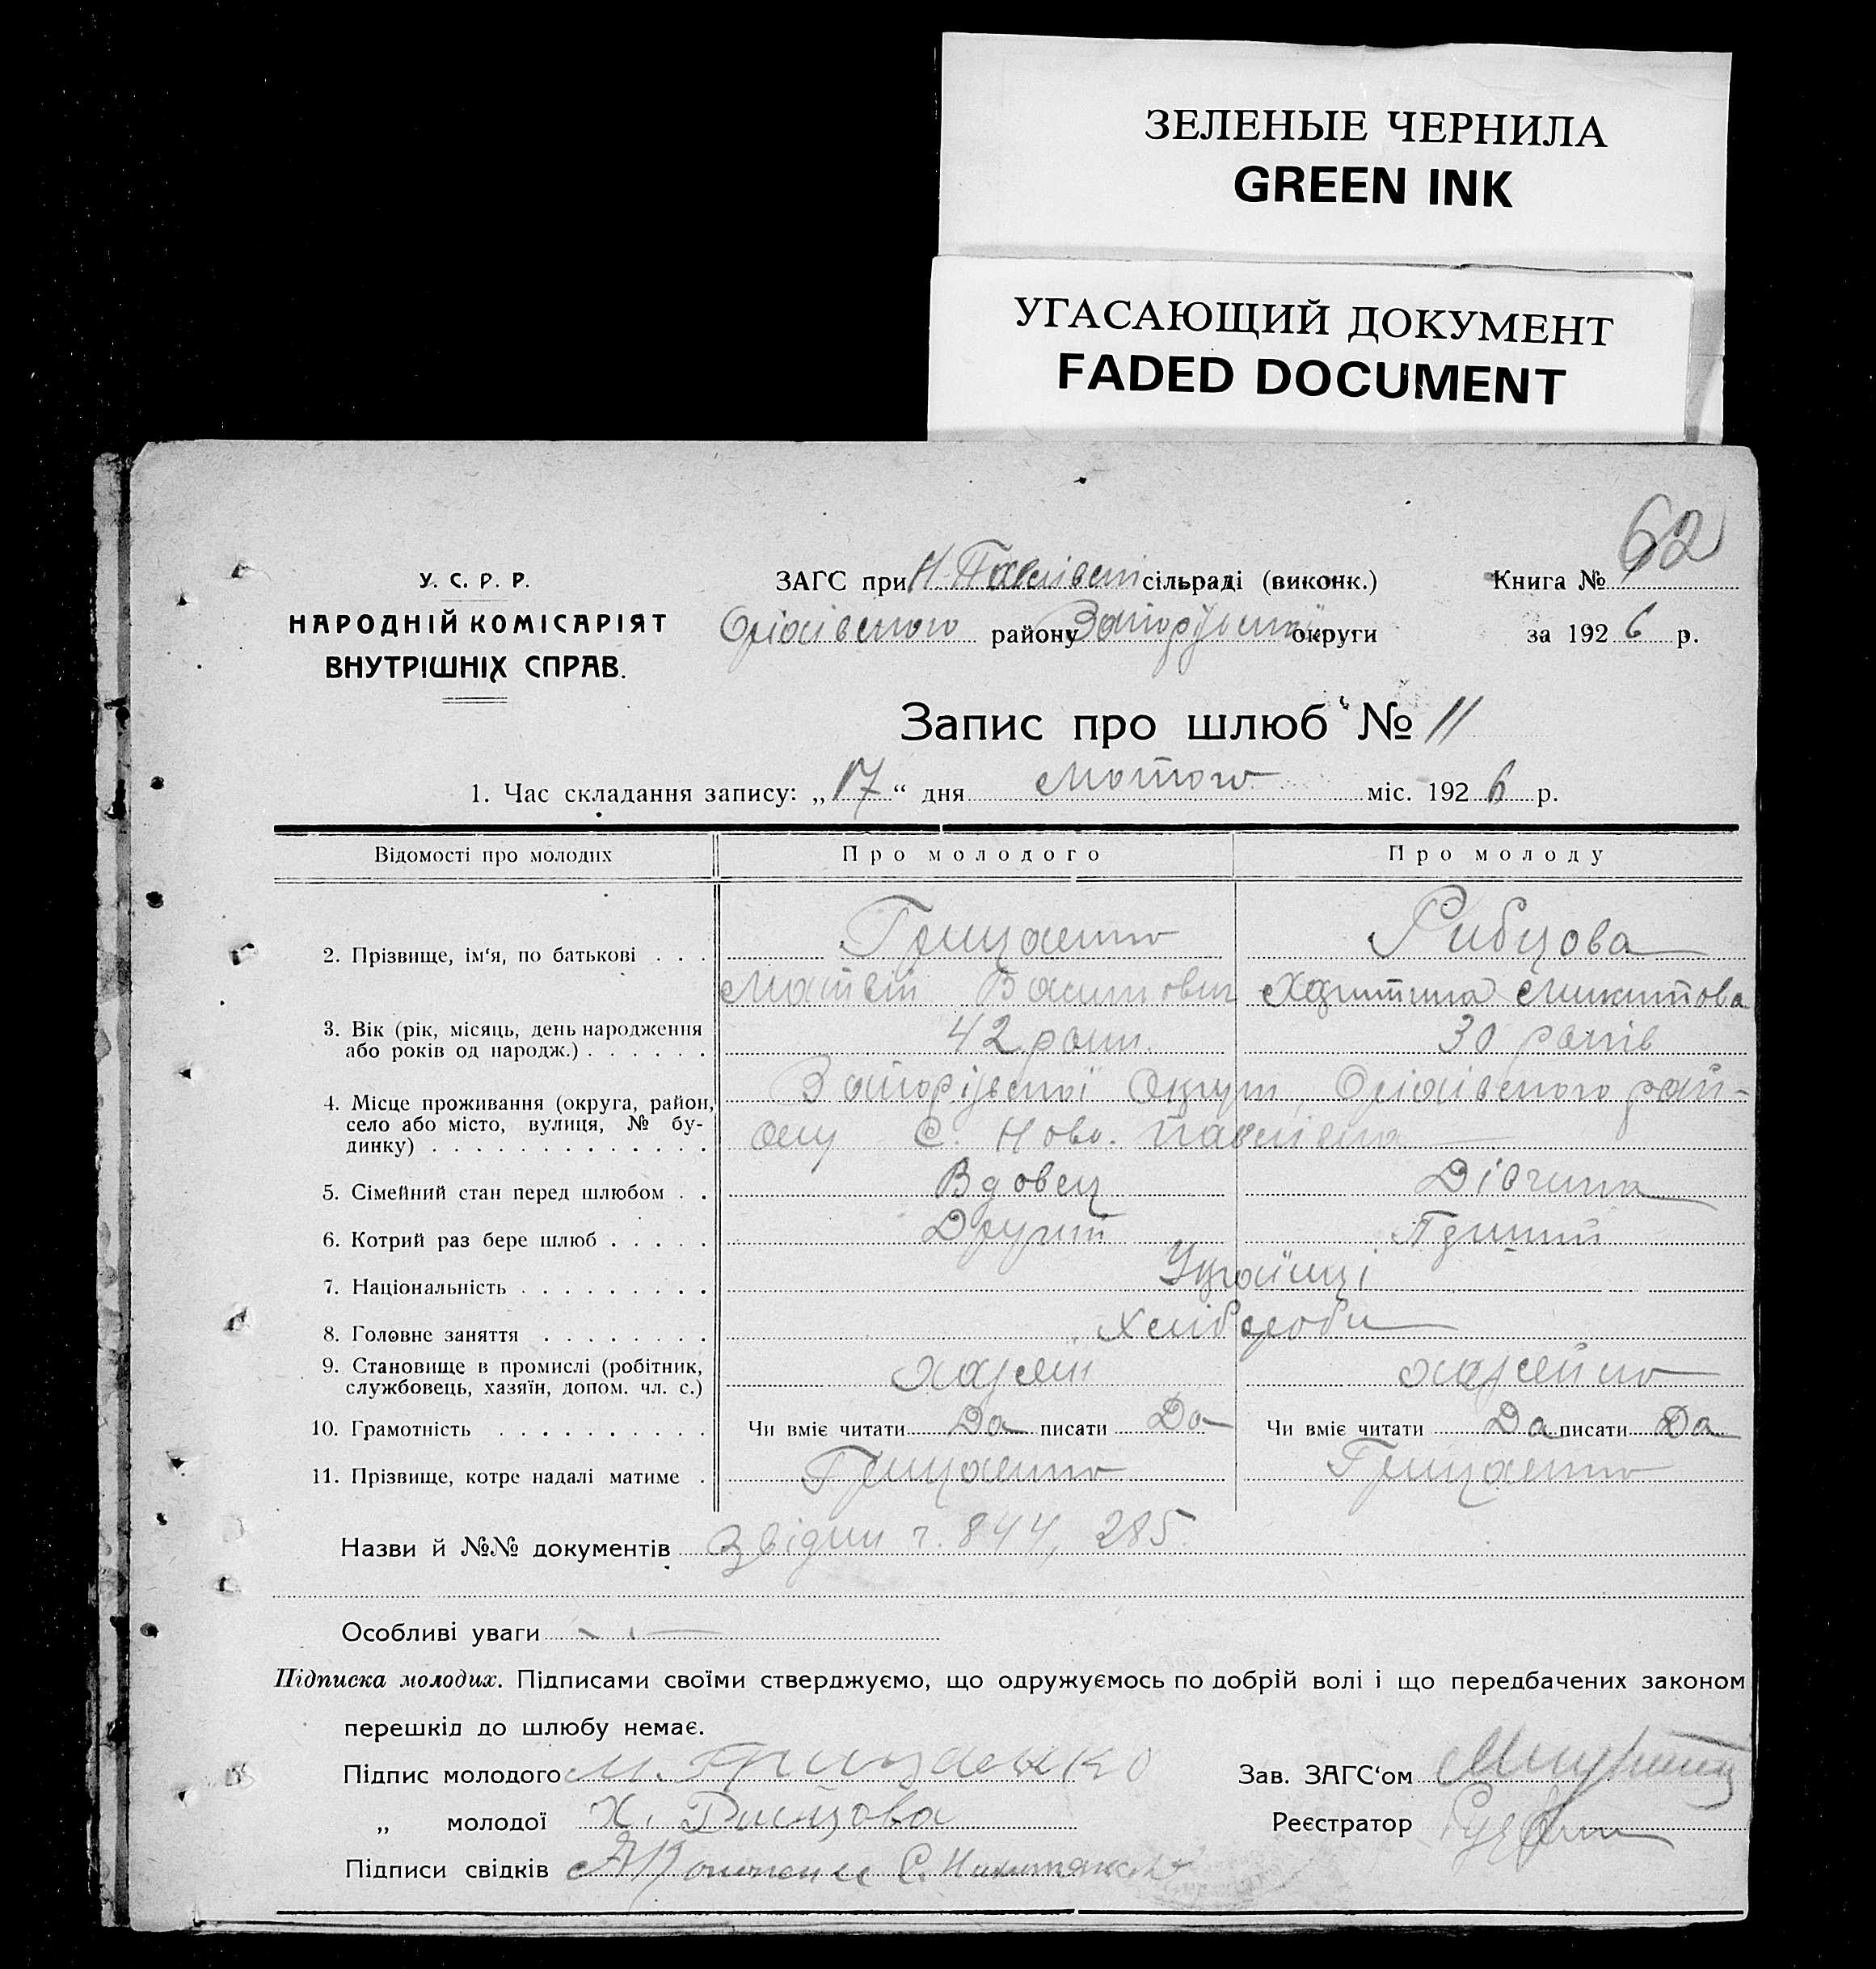 ЗЕЛЕНЫЕ ЧЕРНИЛА
GREEN INK
УГАСАЮЩИЙ ДОКУМЕНТ
FADED DOCUMENT
62
У. С. Р. Р.
НАРОДНІЙ КОМІСАРІЯТ
ВНУТРІШНІХ СПРАВ.
ЗАГС при Н-Павлівській сільраді (виконк.)
Книга №
Оріхівського району Запоріжської округи
за 1926 р.
Запис про шлюб № 11
1. Час складання запису: „17“ дня лютого міс. 1926 р.
Відомості про молодих Про молодого Про молоду
2. Прізвище, ім‘я, по батькові . . . Грицаенко Рибцова
Матвій Васильович Харитина Микитова
3. Вік (рік, місяць, день народження
або років од народж.) . . . . . . 42 роки. 30 років
4. Місце проживання (округа, район,
село або місто, вулиця, № бу-
динку) . . . . . . . . . . . . .
Запоріжської Округи, Оріхівського рай-
ону С. Ново. Павлівка
5. Сімейний стан перед шлюбом . . Вдовец Дівчина
6. Котрий раз бере шлюб . . . . . Другий Перший
7. Національність . . . . . . . . . Українці
8. Головне заняття . . . . . . . Хлібороби
9. Становище в промислі (робітник,
службовець, хазяїн, допом. чл. с.) хазяїн хазяйка
10. Грамотність . . . . . . . . . . Чи вміє читати Да писати Да Чи вміє читати Да писати Да
11. Прізвище, котре надалі матиме . Грицаенко Грицаенко
Назви й №№ документів Звідки ч. 844, 285.
Особливі уваги
Підписка молодих. Підписами своїми стверджуємо, що одружуємось по добрій волі і що передбачених законом
перешкід до шлюбу немає.
Підпис молодого М. Грицаенко
Зав. ЗАГС‘ом
„ молодої Х. Рибцова
Реєстратор
Підписи свідків